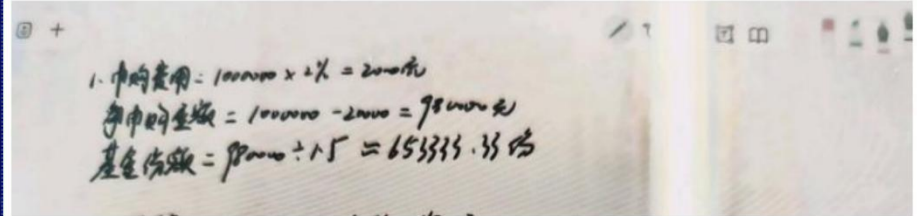 1. 申购费用 = 1000000 × 2% = 20000元
净申购金额 = 1000000 - 20000 = 980000元
基金份额 = 980000 ÷ 1.5 = 653333.33份